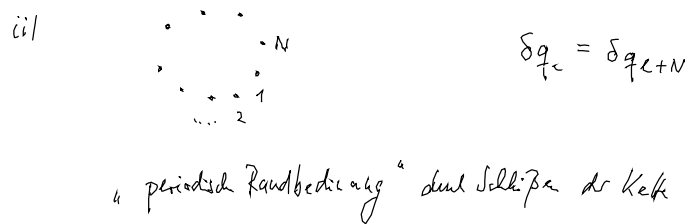 ii)
N
1
.... 2
δq_l = δq_{l+N}
„ periodisch Randbedingung “ durch Schließen der Kette